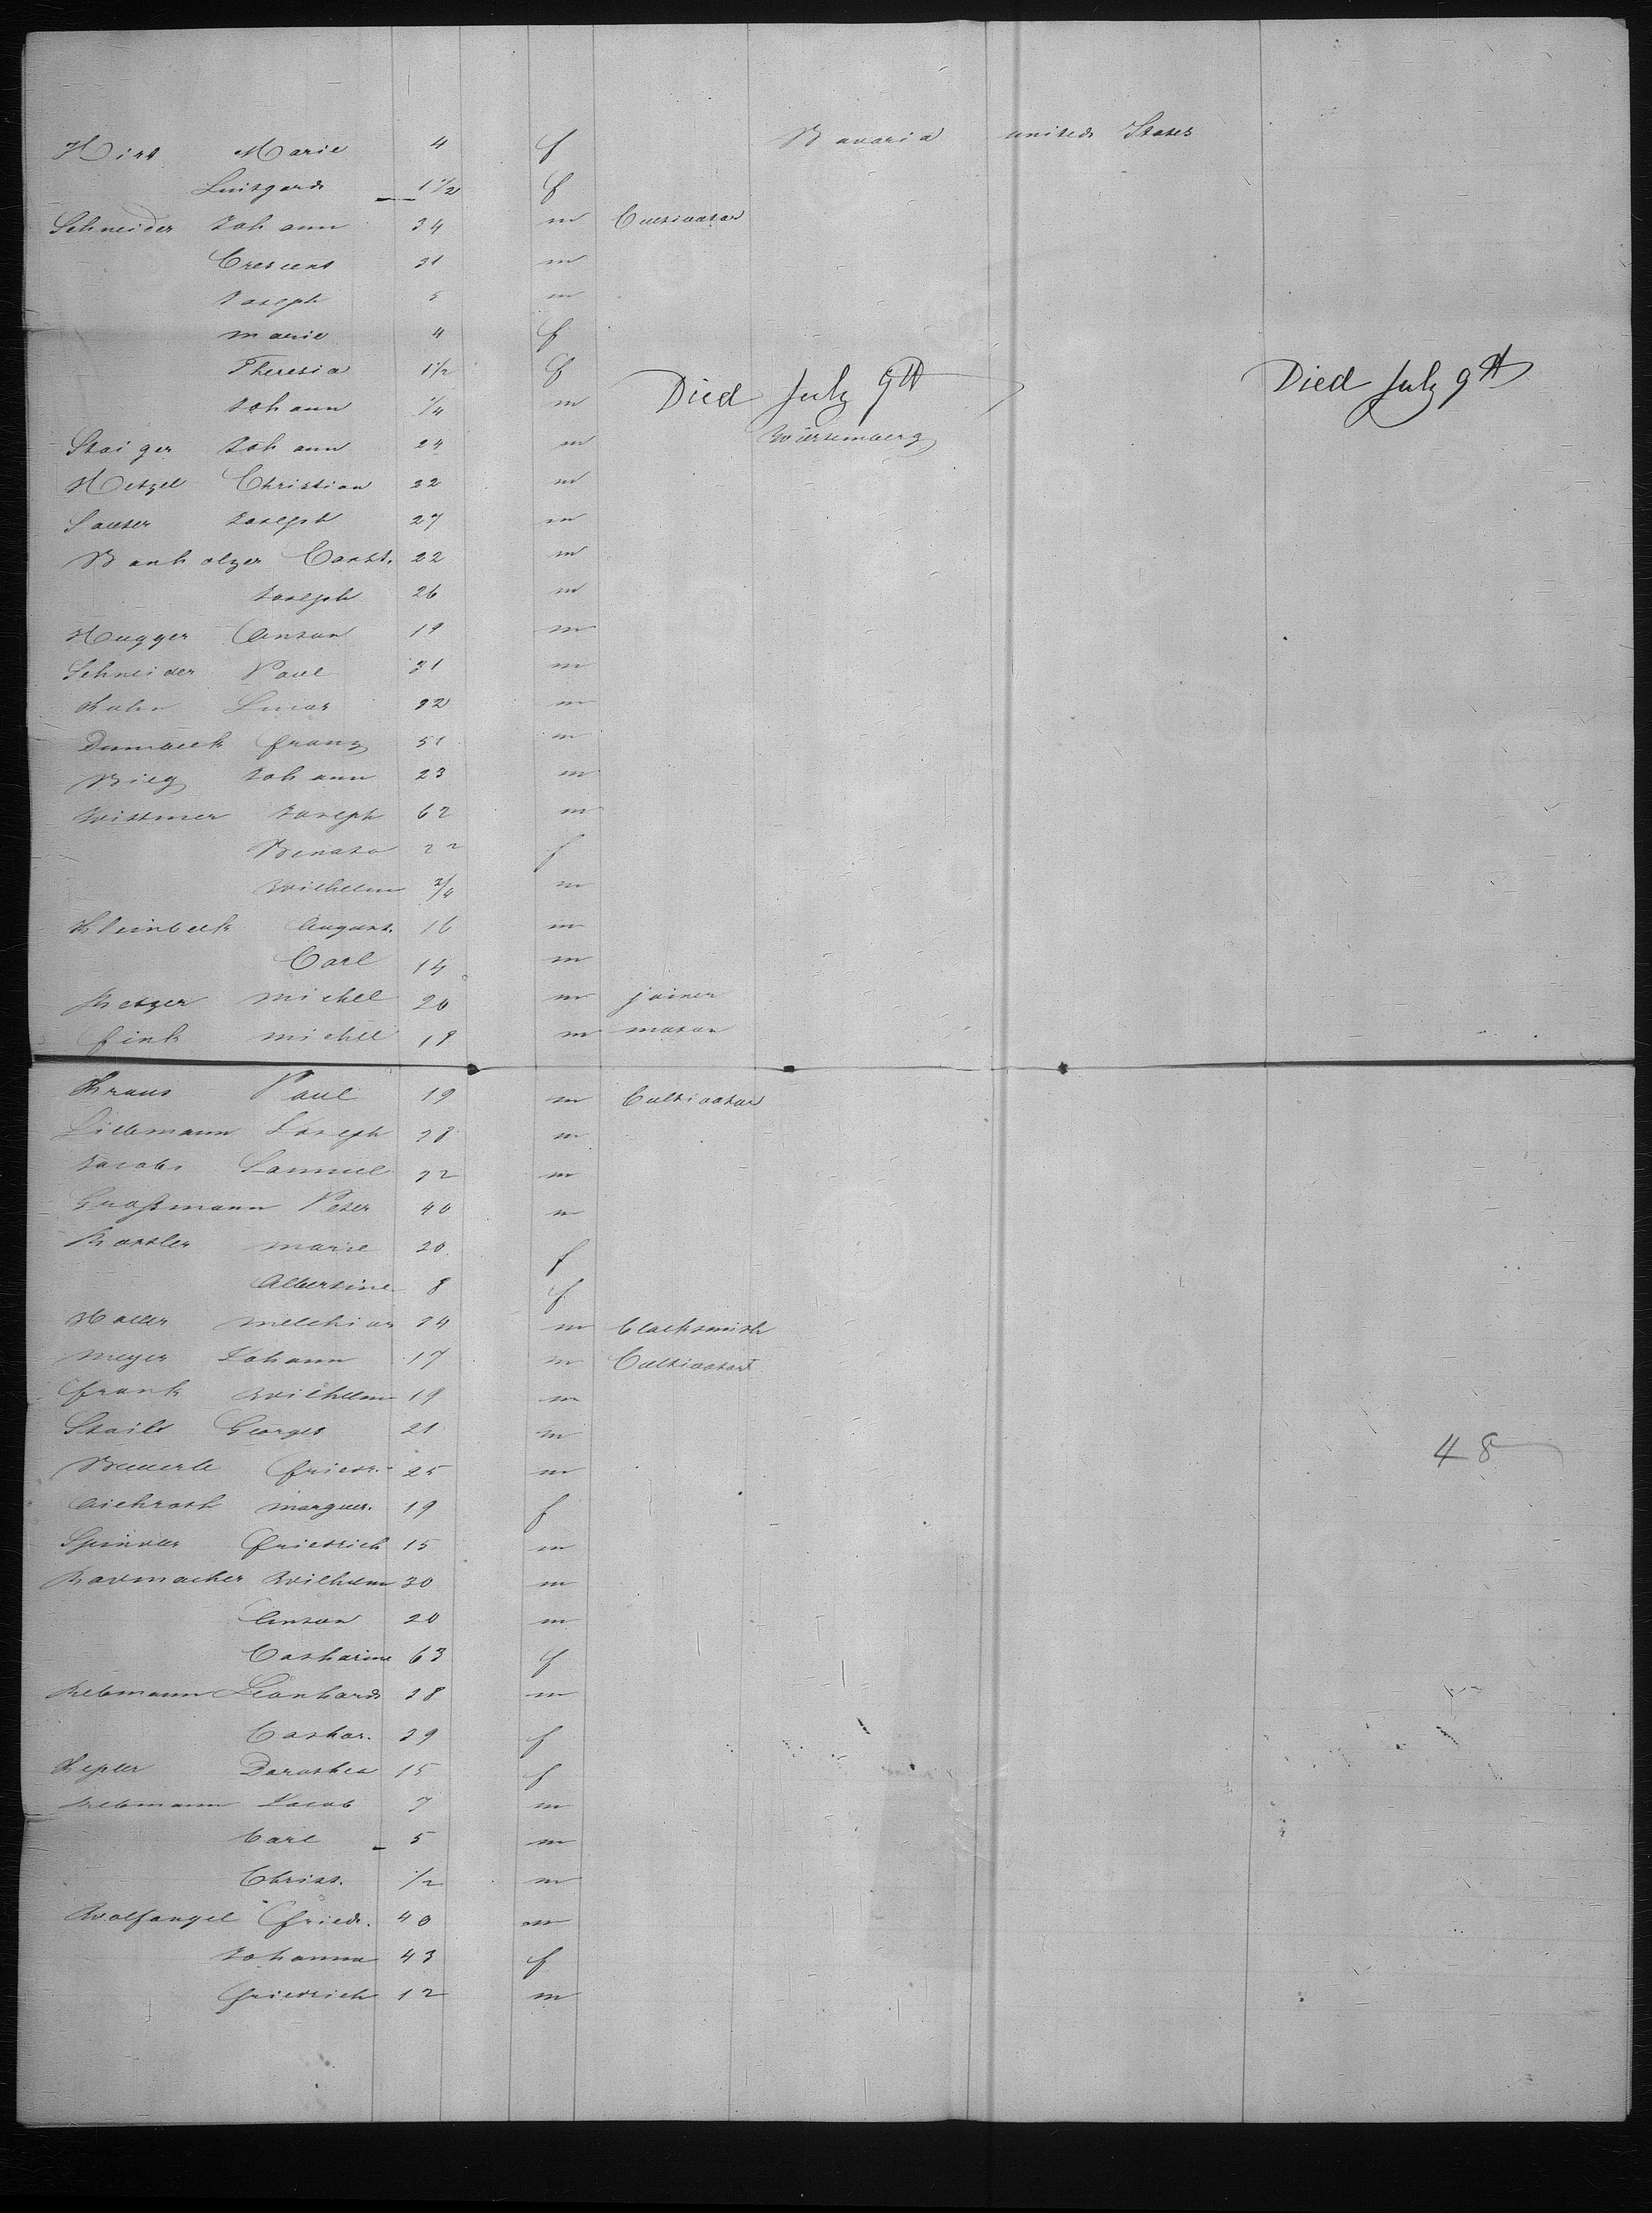 Hirt Marie 4 f Bavaria united States
Luitgard 1 1/2 f
Schneider Johann 34 m Cultivator
Crescent 31 m
Joseph 5 m
Marie 4 f
Theresia 1 1/2 f
Johann 1/4 m Died July 9th Died July 9th
Staiger Johann 24 m Würtemberg
Hetzel Christian 22 m
Sauter Joseph 27 m
Banholzer Const. 22 m
Joseph 26 m
Hugger Anton 19 m
Schneider Paul 31 m
Kuhn Lucas 32 m
Franz 51 m
Bieg Johann 23 m
Wittmer Joseph 62 m
Renata 22 f
Wilhelm 3/4 m
Kleinbeck August. 16 m
Carl 14 m
Metzger Michel 20 m joiner
Fink Michel 18 m mason
Kraus Paul 19 m Cultivator
Liebmann Joseph 38 m
Jacobs Samuel 32 m
Großmann Peter 40 m
Kastler Marie 30 f
Albertine 8 f
Haller Melchior 34 m blacksmith
Meyer Johann 17 m Cultivator
Frank Wilhelm 19 m
Staib Georges 21 m
48
Beuerle Friedr. 25 m
Aichroth Marguer. 19 f
Spindler Friedrich 15 m
Radmacher Wilhelm 30 m
Anton 20 m
Catharine 63 f
Rebmann Leonhard 38 m
Cathar. 39 f
Kepler Dorothea 15 f
Rebmann Jacob 7 m
Carl 5 m
Christ. 1/2 m
Wolfangel Friedr. 40 m
Johanna 43 f
Friedrich 12 m